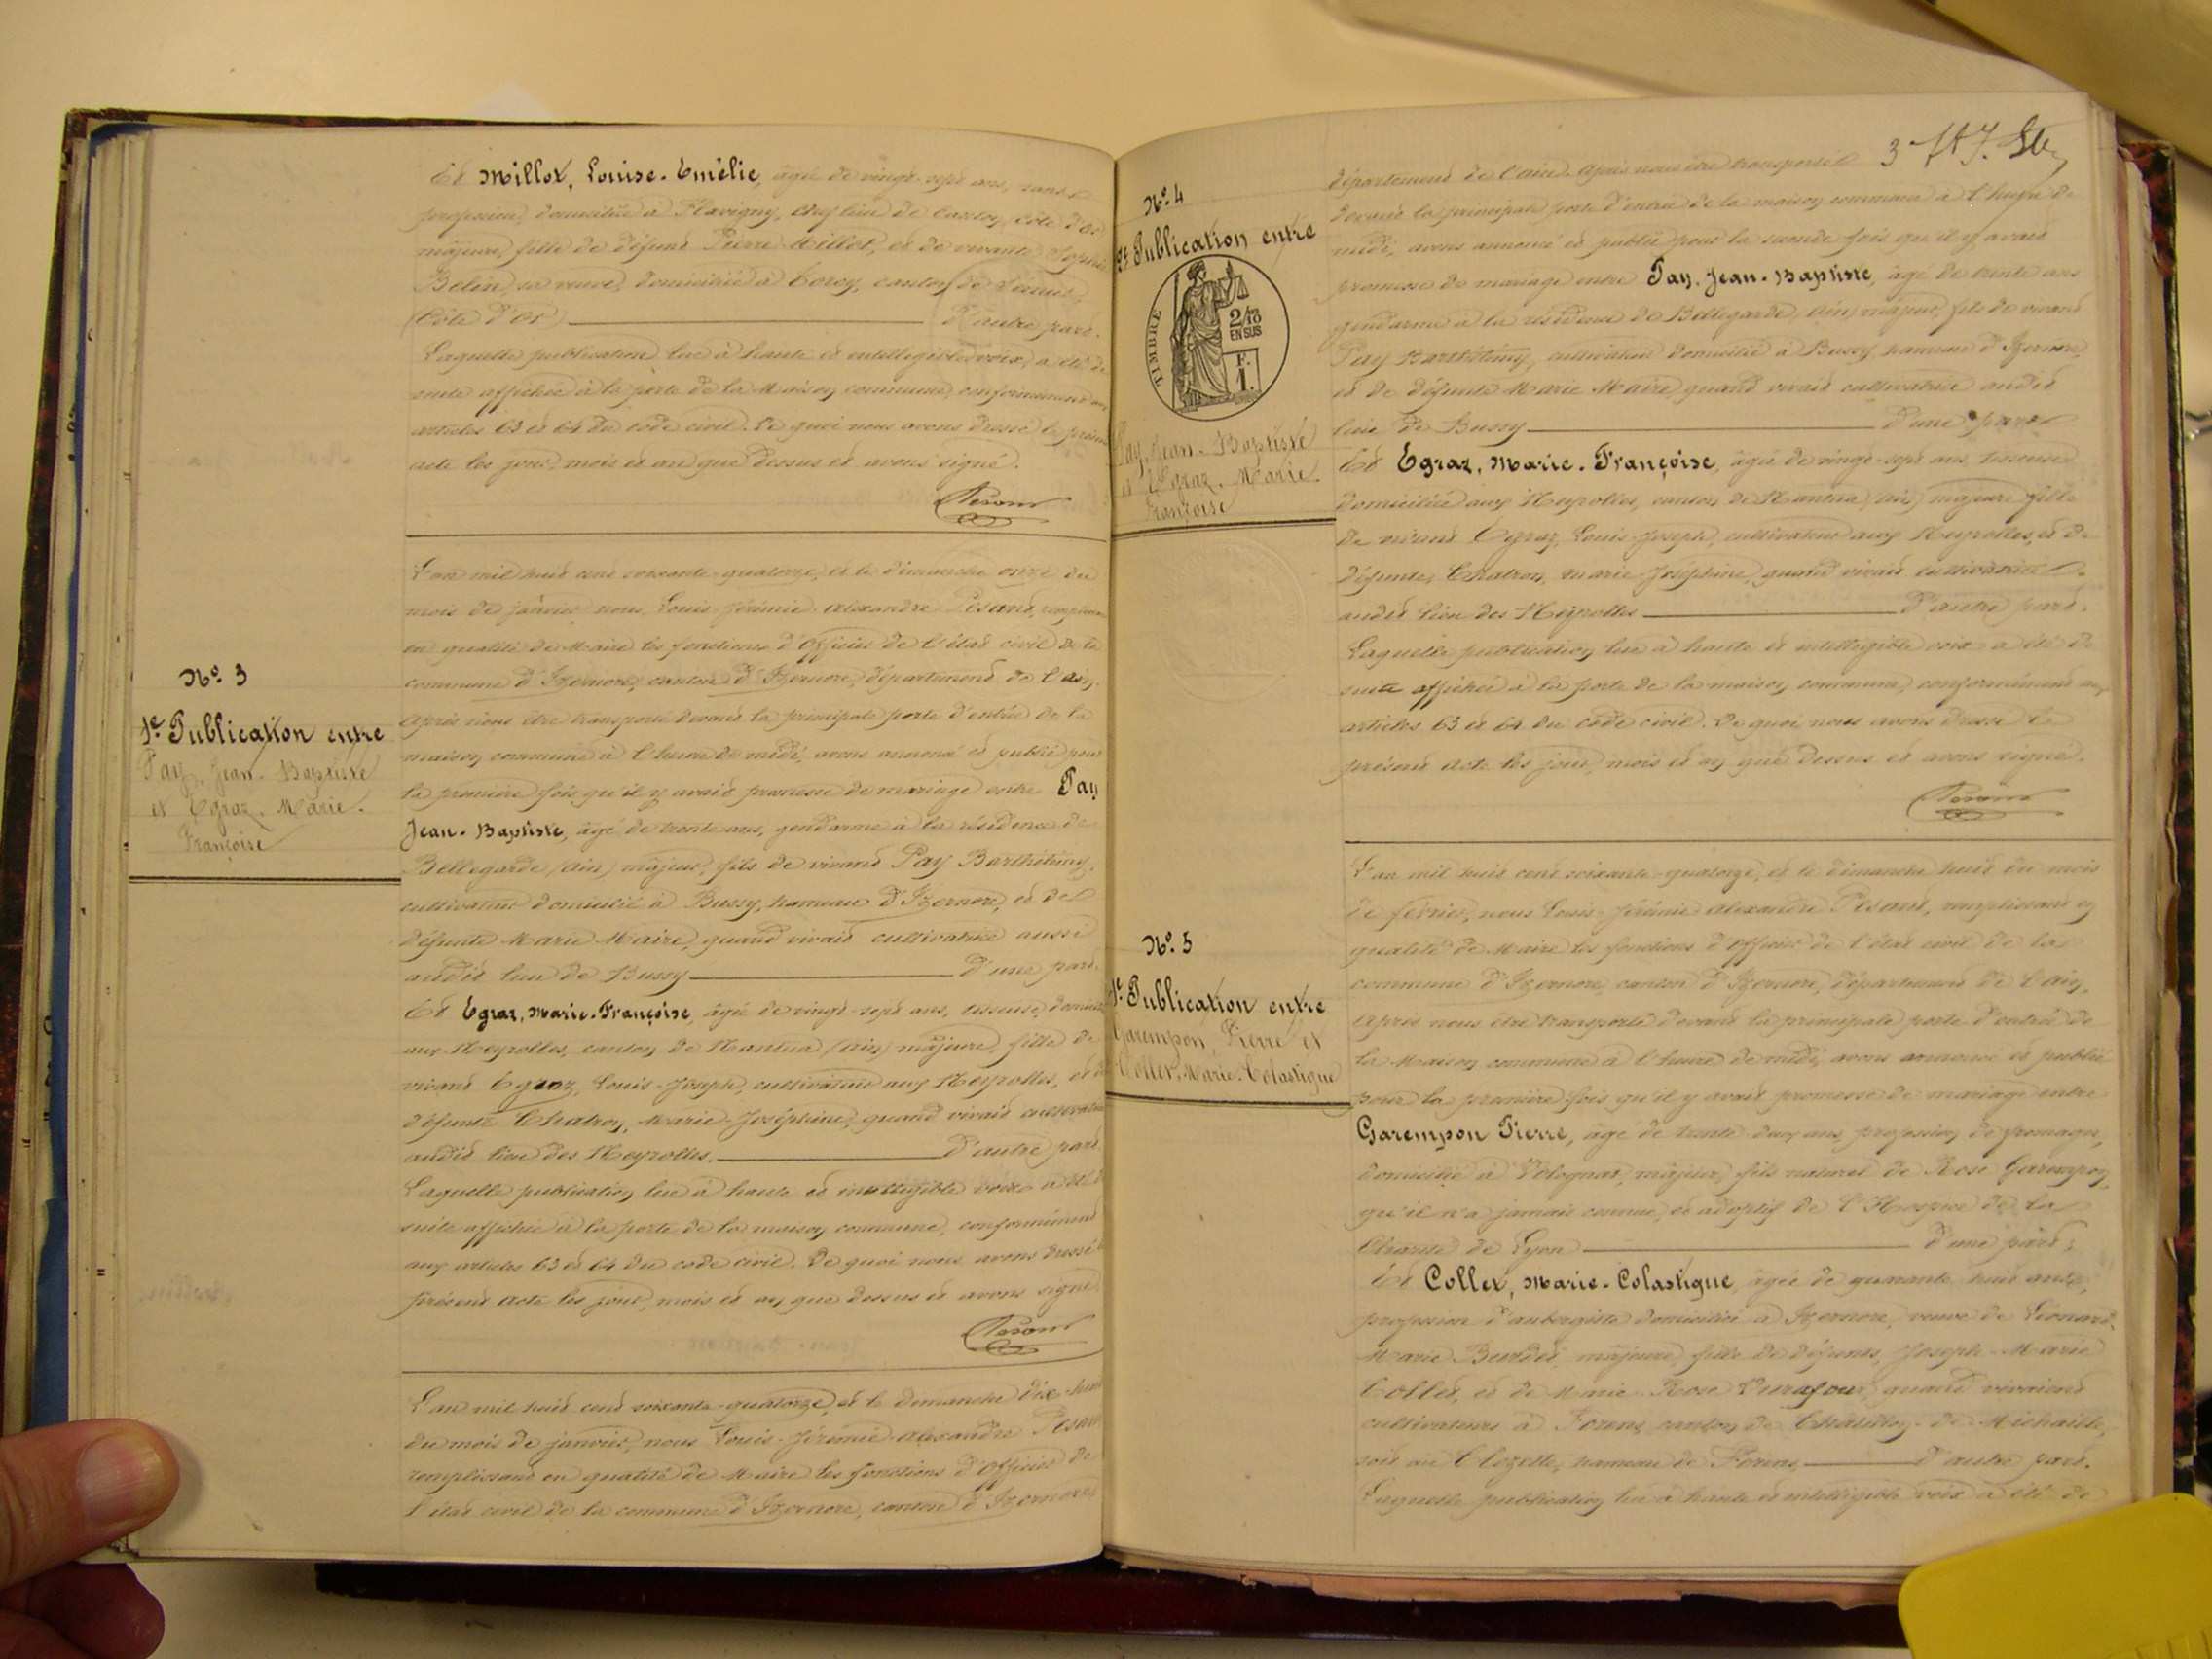 Et Millot, Louise-Emélie, âgée de vingt-sept ans, sans
profession, domiciliée à Flavigny, chef lieu de Canton, (Côte d'Or)
majeure, fille de défunt Pierre Millot, et de vivante Sophie
Belin sa veuve, domiciliée à Corcy, canton de
(Côte d'Or) d'autre part.
Laquelle publication, lue à haute et intelligible voix, a été de
suite affichée à la porte de la Maison commune, conformément aux
articles 63 et 64 du code civil. De quoi nous avons dressé le présent
acte les jour, mois et an que dessus et avons signé.
Pesant
Nº 3
1e Publication entre
Pay, Jean-Baptiste
et Egraz, Marie-
Françoise
L'an mil huit cent soixante-quatorze, et le dimanche onze du
mois de janvier nous, Louis-Jérémie-Alexandre Pesant, remplissant
en qualité de Maire les fonctions d'Officier de l'état civil de la
commune d'Izernore, canton d'Izernore, département de l'Ain.
Après nous être transporté devant la principale porte d'entrée de la
maison commune à l'heure de midi, avons annoncé et publié pour
la première fois qu'il y avait promesse de mariage entre Pay
Jean-Baptiste, âgé de trente ans, gendarme à la résidence de
Bellegarde (Ain) majeur, fils de vivant Pay Barthélimy,
cultivateur domicilié à Bussy, hameau d'Izernore, et de
défunte Marie Maire, quand vivait cultivatrice aussi
audit lieu de Bussy d'une part.
Et Egraz, Marie-Françoise, âgée de vingt-sept ans, tisseuse, domiciliée
aux Neyrolles, canton de Nantua (Ain) majeure, fille de
vivant Egraz, Louis-Joseph, cultivateur aux Neyrolles, et de
défunte Chatron, Marie-Joséphine, quand vivait cultivatrice
audit lieu des Neyrolles. d'autre part.
Laquelle publication lue à haute et intelligible voix a été de
suite affichée à la porte de la maison commune, conformément
aux articles 63 et 64 du code civil. De quoi nous avons dressé le
présent acte les jour, mois et an que dessus et avons signé.
Pesant
L'an mil huit cent soixante-quatorze, et le dimanche dix-huit
du mois de janvier, nous Louis-Jérémie-Alexandre Pesant
remplissant en qualité de Maire les fonctions d'Officier de
l'état civil de la commune d'Izernore, canton d'Izernore
3
Nº 4
2e Publication entre
TIMBRE
2/10
EN SUS
F.
1.
Pay, Jean-Baptiste
et Egraz, Marie-
Françoise
département de l'Ain. Après nous être transporté
devant la principale porte d'entrée de la maison commune à l'heure de
midi, avons annoncé et publié pour la seconde fois qu'il y avait
promesse de mariage entre Pay, Jean-Baptiste, âgé de trente ans
gendarme à la résidence de Bellegarde, (Ain) majeur, fils de vivant
Pay Barthélimy, cultivateur domicilié à Bussy hameau d'Izernore,
et de défunte Marie Maire, quand vivait cultivatrice audit
lieu de Bussy d'une part
Et Egraz, Marie-Françoise, âgée de vingt-sept ans, tisseuse
domiciliée aux Neyrolles, canton de Nantua (Ain) majeure fille
de vivant Egraz, Louis-Joseph, cultivateur aux Neyrolles, et de
défunte, Chatron, Marie-Joséphine, quand vivait cultivatrice
audit lieu des Neyrolles d'autre part.
Laquelle publication, lue à haute et intelligible voix a été de
suite affichée à la porte de la maison commune, conformément aux
articles 63 et 64 du code civil. De quoi nous avons dressé le
présent acte les jour, mois et an que dessus et avons signé.
Pesant
Nº 5
1e Publication entre
Garempon Pierre et
Collet, Marie-Colastique
L'an mil huit cent soixante-quatorze, et le dimanche huit du mois
de février, nous Louis-Jérémie-Alexandre Pesant, remplissant en
qualité de Maire les fonctions d'Officier de l'état civil de la
commune d'Izernore, canton d'Izernore, département de l'Ain.
Après nous être transporté devant la principale porte d'entrée de
la Maison commune à l'heure de midi, avons annoncé et publié
pour la première fois qu'il y avait promesse de mariage entre
Garempon Pierre, âgé de trente-deux ans, profession de fromager,
domicilié à Volognat, majeur, fils naturel de Rose Garempon,
qu'il n'a jamais connue, et adoptif de l'Hospice de la
Charité de Lyon d'une part;
Et Collet, Marie-Colastique, âgée de quarante-huit ans,
profession d'aubergiste domiciliée à Izernore, veuve de Léonard-
Marie majeure, fille de défunts, Joseph-Marie
Collet, et de Marie-Rose Durafour, quand vivaient
cultivateurs à Forens, canton de Châtillon-de-Michaille,
soit au hameau de Forens, d'autre part.
Laquelle publication lue à haute et intelligible voix a été de